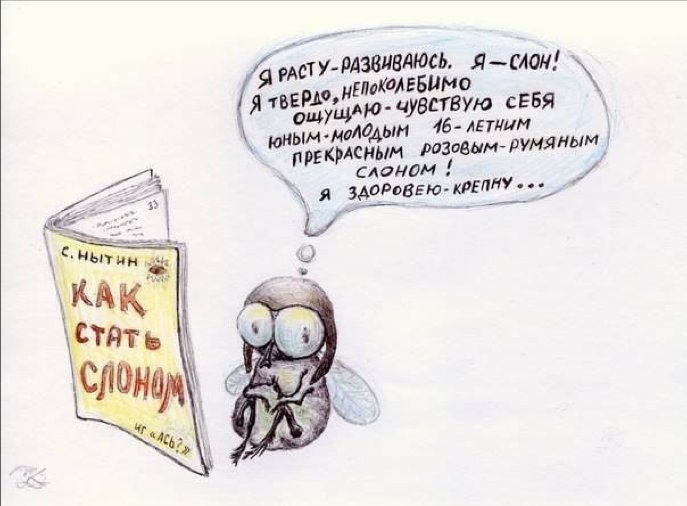 Я РАСТУ-РАЗВИВАЮСЬ. Я — СЛОН!
Я ТВЕРДО, НЕПОКОЛЕБИМО
ОЩУЩАЮ-ЧУВСТВУЮ СЕБЯ
ЮНЫМ-МОЛОДЫМ 16-ЛЕТНИМ
ПРЕКРАСНЫМ РОЗОВЫМ-РУМЯНЫМ
СЛОНОМ!
Я ЗДОРОВЕЮ-КРЕПНУ...
33
С. НЫТИН
КАК
СТАТЬ
СЛОНОМ
ИГ «АСЬ?»